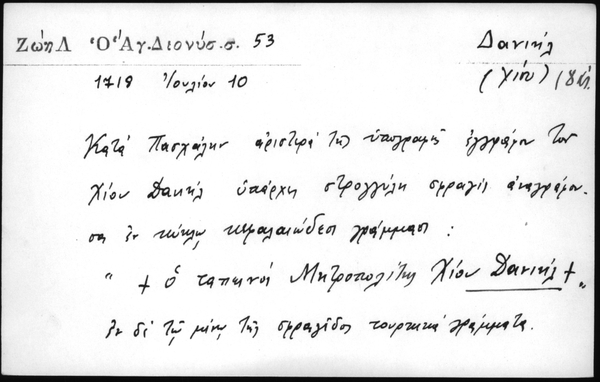 Ζώη Λ Ὁ Ἁγ. Διονύσ. σ. 53
Δανιήλ
1718 Ἰουλίου 10
(Χίου)
Κατὰ Πασχάλην ἀριστερὰ τῆς ὑπογραφῆς ἐγγράφου τοῦ
Χίου Δανιήλ ὑπάρχει στρογγύλη σφραγὶς ἀναγράφου-
σα ἐν κύκλῳ κεφαλαιώδεσι γράμμασι :
" + ὁ ταπεινὸς Μητροπολίτης Χίου Δανιήλ + "
ἐν δὲ τῷ μέσῳ τῆς σφραγῖδος τουρκικὰ γράμματα.